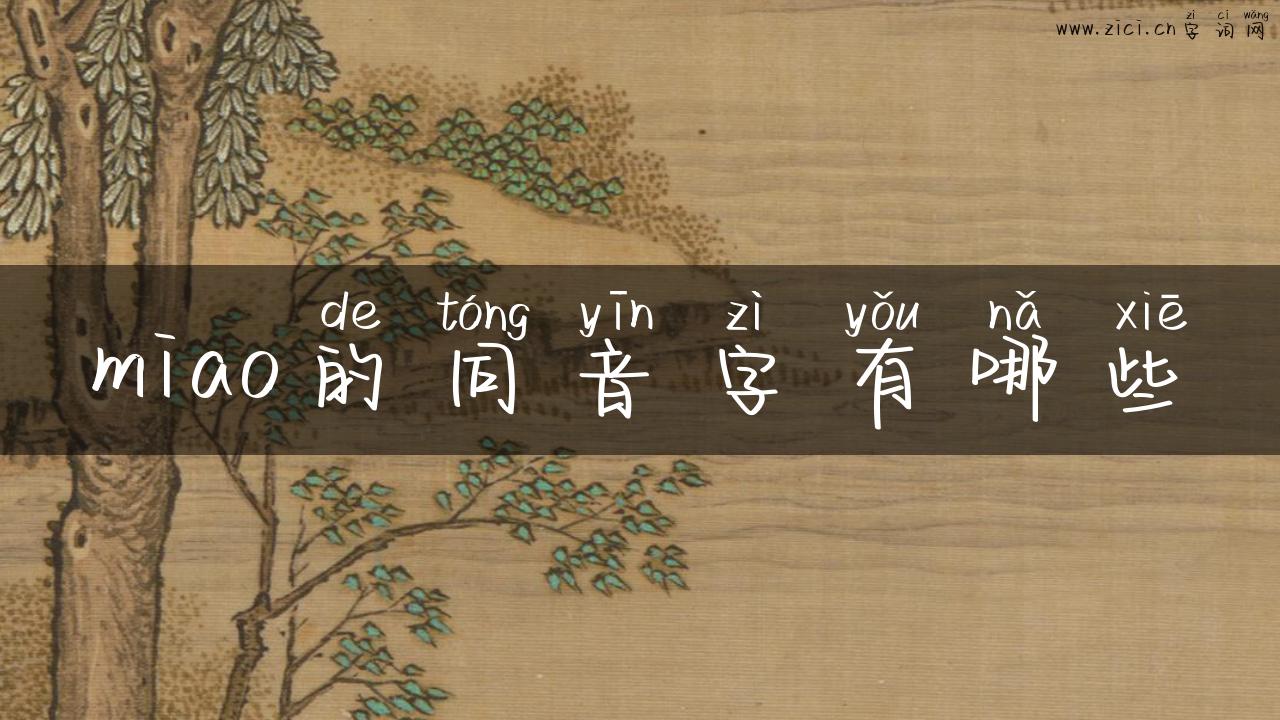 zì cí wǎng
www.zici.cn 字词网
de tóng yīn zì yǒu nǎ xiē
miao的同音字有哪些